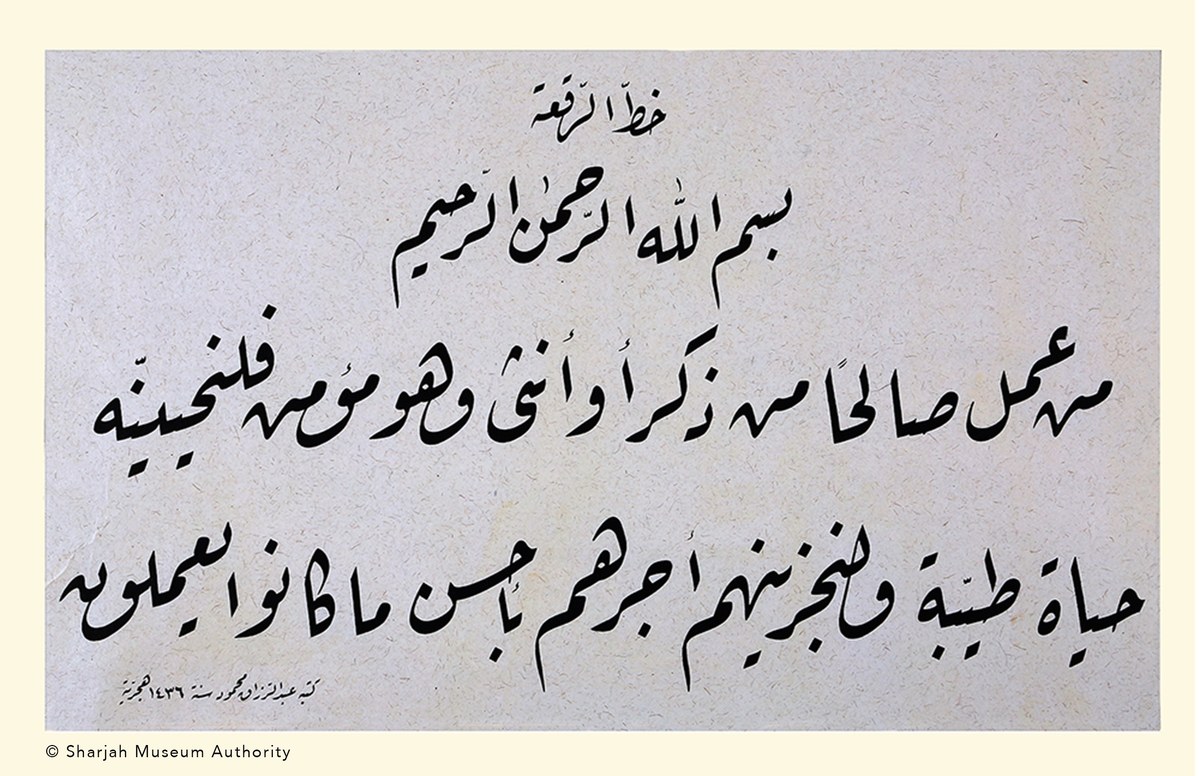 خطّ الرّقعة
بسم اللّٰه الرّحمٰن الرّحيم
من عمل صالحًا من ذكر أو أنثى وهو مؤمن فلنحيينّه
حياة طيّبة ولنجزينهم أجرهم بأحسن ما كانوا يعملون
كتبه عبد الرّزاق محمود سنة ١٤٣٦ هجريّة
© Sharjah Museum Authority